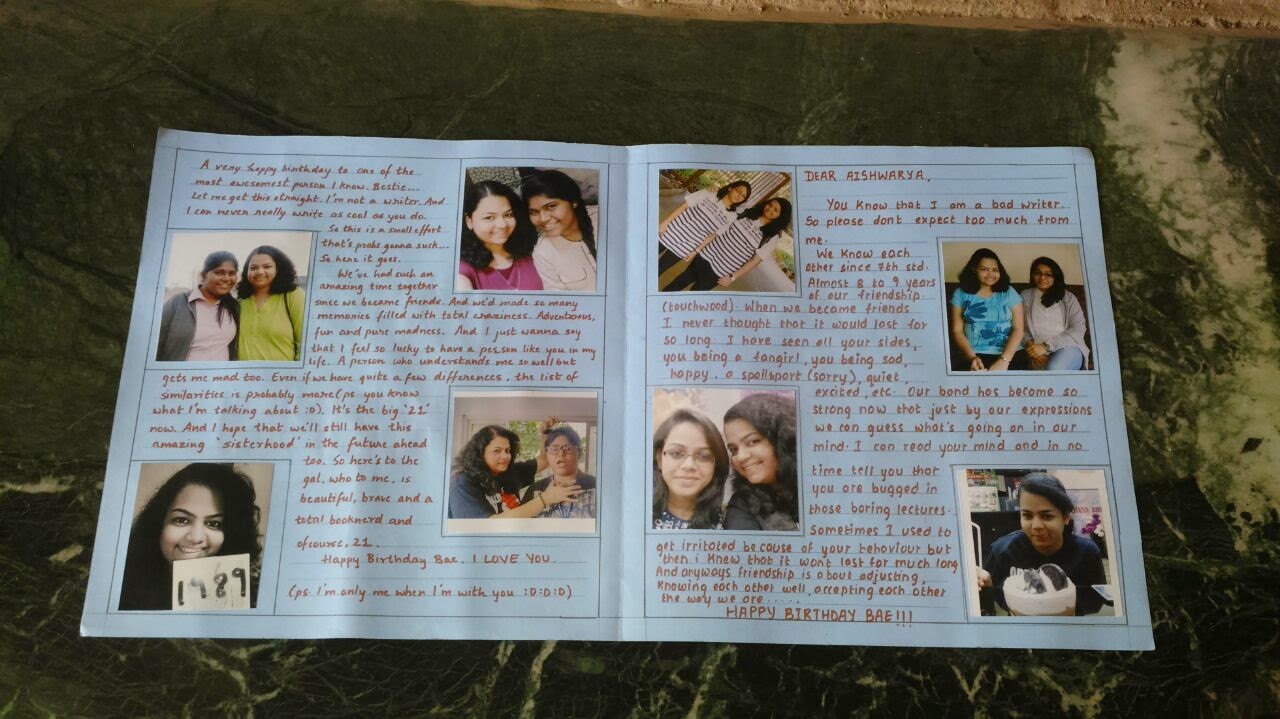 A very happy birthday to one of the
most awesomest person I know. Bestie...
Let me get this straight. I'm not a writer. And
I can never really write as cool as you do.
So this is a small effort
that's probs gonna suck...
So here it goes.
We've had such an
amazing time together
since we became friends. And we'd made so many
memories filled with total craziness. Adventurous,
fun and pure madness. And I just wanna say
that I feel so lucky to have a person like you in my
life. A person who understands me so well but
gets me mad too. Even if we have quite a few differences, the list of
similarities is probably more (ps you know
what I'm talking about :D). It's the big '21'
now. And I hope that we'll still have this
amazing 'sisterhood' in the future ahead
too. So here's to the
gal, who to me, is
beautiful, brave and a
total booknerd and
ofcourse, 21.
Happy Birthday Bae. I LOVE YOU.
(ps I'm only me when I'm with you :D:D:D)
1989
DEAR AISHWARYA,
You know that I am a bad writer.
So please dont expect too much from
me.
We know each
other since 7th std.
Almost 8 to 9 years
of our friendship.
(touchwood). When we became friends
I never thought that it would last for
so long. I have seen all your sides,
you being a fangirl, you being sad,
happy, a spoilsport (sorry), quiet,
excited, etc. Our bond has become so
strong now that just by our expressions
we can guess what's going on in our
mind. I can read your mind and in no
time tell you that
you are bugged in
those boring lectures.
Sometimes I used to
get irritated because of your behaviour but
then i knew that it won't last for much long
And anyways friendship is about adjusting,
Knowing each other well, accepting each other
the way we are.....
HAPPY BIRTHDAY BAE!!!